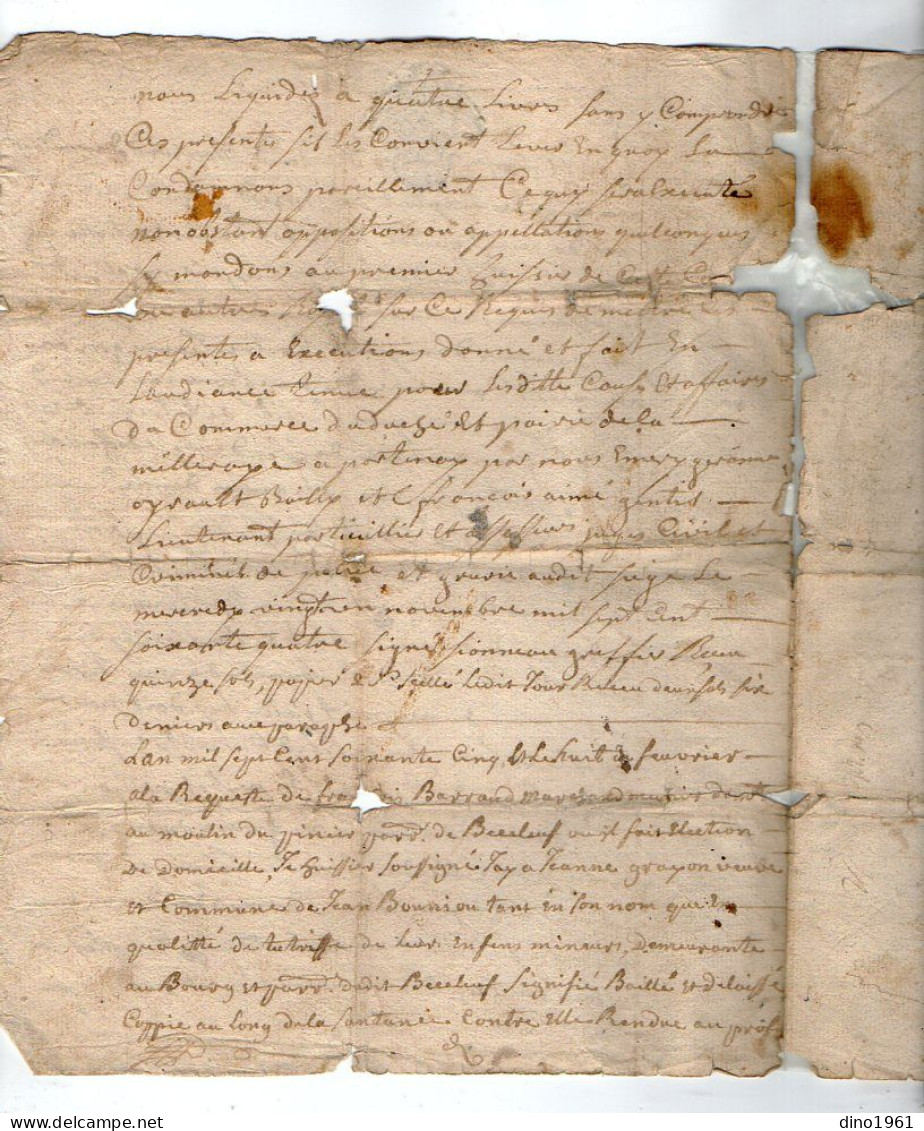 nous Liquides a quatre Livres sans y Comprendre
Ces presentes sil les Convient Lever En quoy La
Condamnons pareillement Ce quy sera Execute
nonobstant oppositions ou appellations quelconques
Sy mandons au premier huissier de Cett
ou autres sur Ce Requis de mettre les
presentes a Executions donné et fait En
Laudiance tenue pour Lesditte Cause Et affaires
Du Commerce du duché Et pairie de la
milleraye a partenay par nous Emery
Bailly et francois aimé gentis
Lieutenant particullier et assesseur juges Civil et
Criminel de police et grurie audit siege Le
mercredy vingt un novembre mil sept cent
soixante quatre signé sionneau greffier Receu
quinze sols, papier et Seellé Ledit Jour Receu deux sols six
deniers avec paraphe
Lan mil sept Cent soixante Cinq Et Le huit feuvrier
ala Requeste de francois Barraud marchand
au moulin du pinier parr. de Beceleuf ou il fait Election
De Domicille, Je huissier soussigné Jay a Jeanne grayon veuve
et Commune de Jean Bouniou tant En son nom que En
qualitté de tutrisse de Leur Enfens mineurs, Demeurante
au Bourg et parr. dudit Beceleuf, signifié Baillé et delaissé
Coppie au Long dela Santance Contre Elle Rendue au prof
dino1961